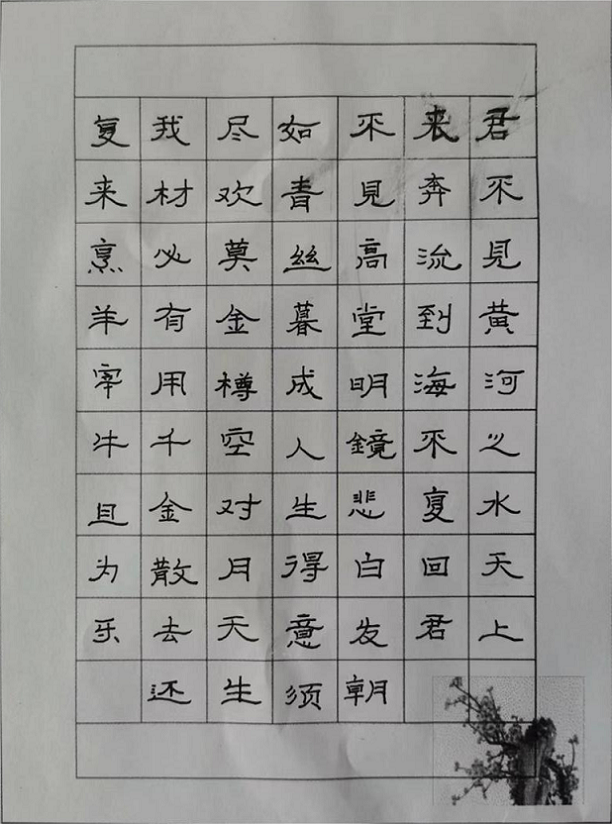 君不見黄河之水天上
来奔流到海不复回君
不見高堂明鏡悲白发朝
如青丝暮成人生得意须
尽欢莫金樽空对月天生
我材必有用千金散去还
复来烹羊宰牛且为乐